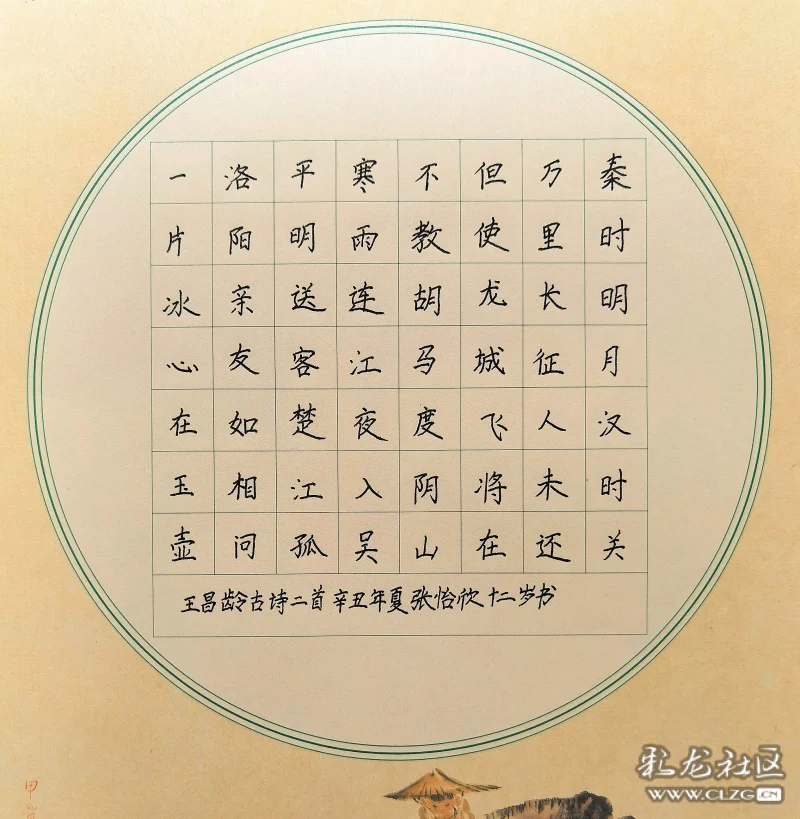 秦时明月汉时关
万里长征人未还
但使龙城飞将在
不教胡马度阴山
寒雨连江夜入吴
平明送客楚江孤
洛阳亲友如相问
一片冰心在玉壶
王昌龄古诗二首辛丑年夏张怡欣十二岁书
彩龙社区
WWW.CLZG.CN